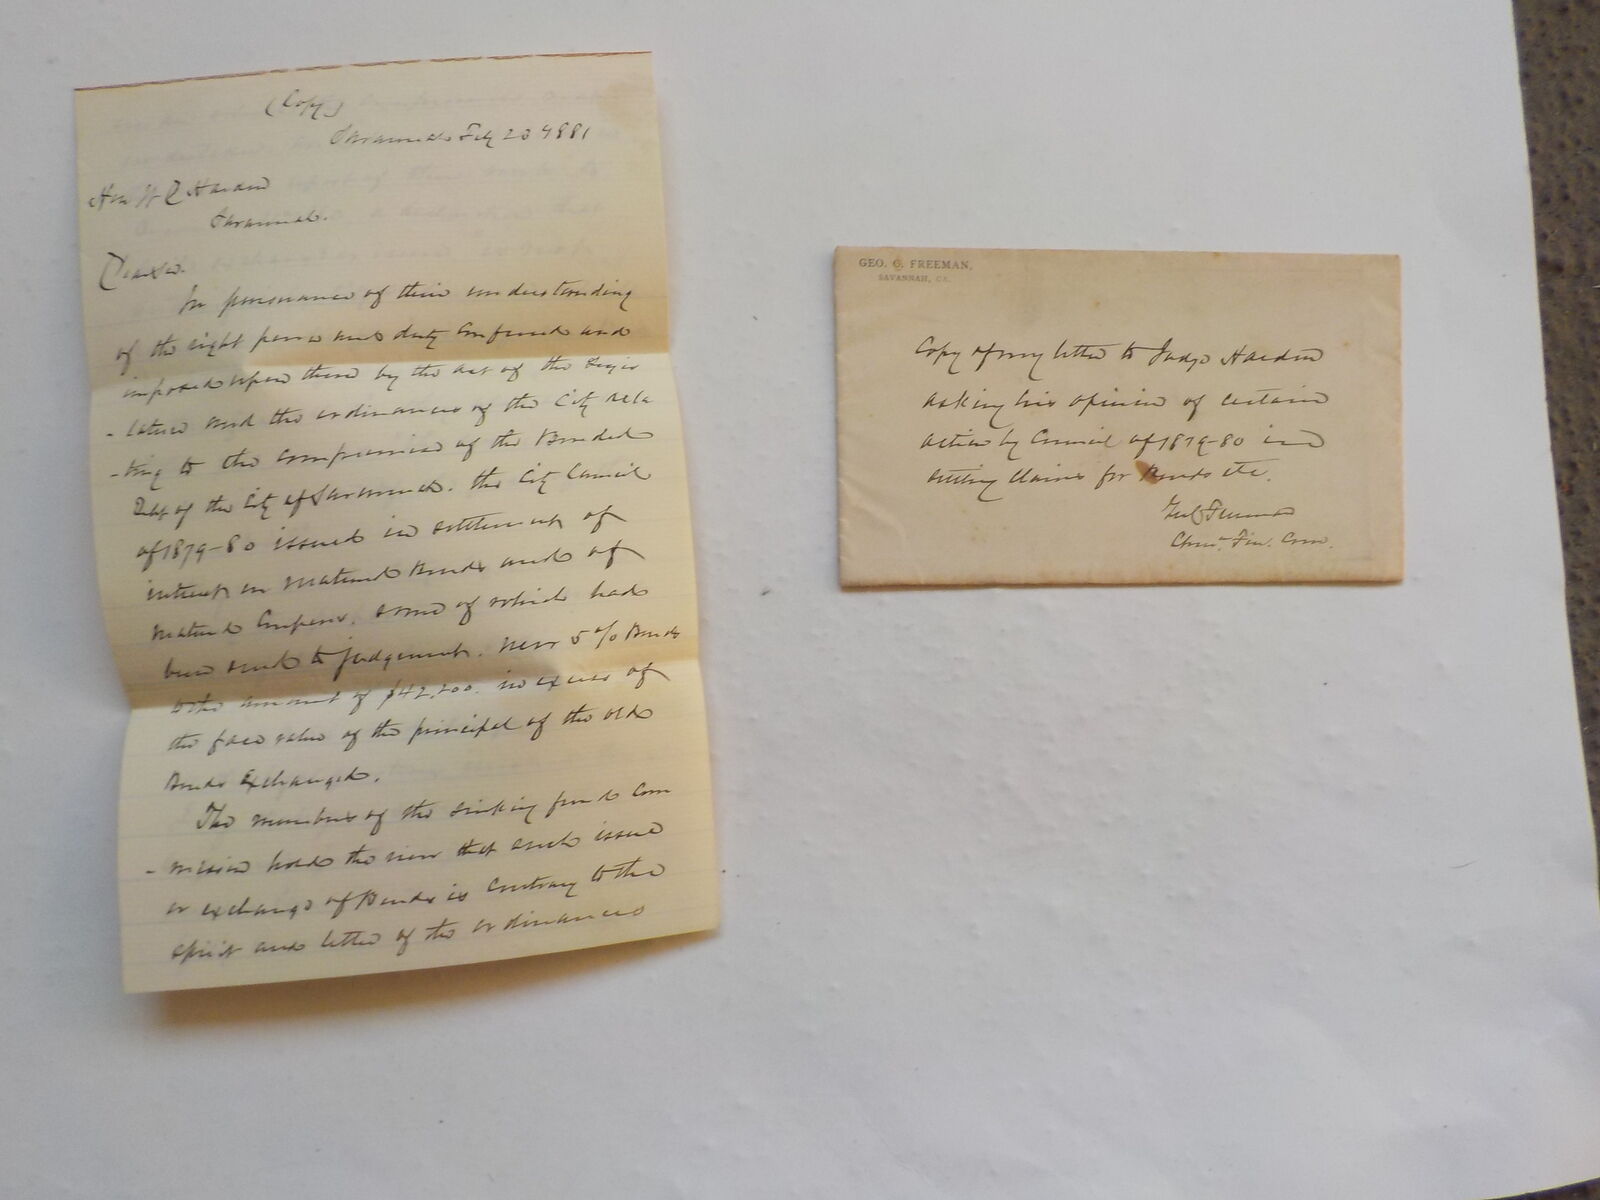 (Copy)
Savannah Feby 23 1881
Hon W D Harden
Savannah.
Dear Sir.
In pursuance of their understanding
of the right power and duty conferred and
imposed upon them by the act of the Legis
- lature and the ordinances of the City rela
- ting to the compromise of the Bonded
Debt of the City of Savannah. the City Council
of 1879-80 issued in settlement of
interest on matured Bonds and of
matured Coupons, some of which had
been sued to judgement. New 5% Bonds
to the amount of $42,200. in excess of
the face value of the principal of the old
Bonds exchanged.
The members of the sinking fund com
- mission hold the view that such issue
or exchange of Bonds is contrary to the
spirit and letter of the ordinances
GEO. C. FREEMAN,
SAVANNAH, GA.
Copy of my letter to Judge Harden
asking his opinion of certain
action by Council of 1879-80 in
settling claims for Bonds etc.
Geo C Freeman
Chmn. Fin. Com.